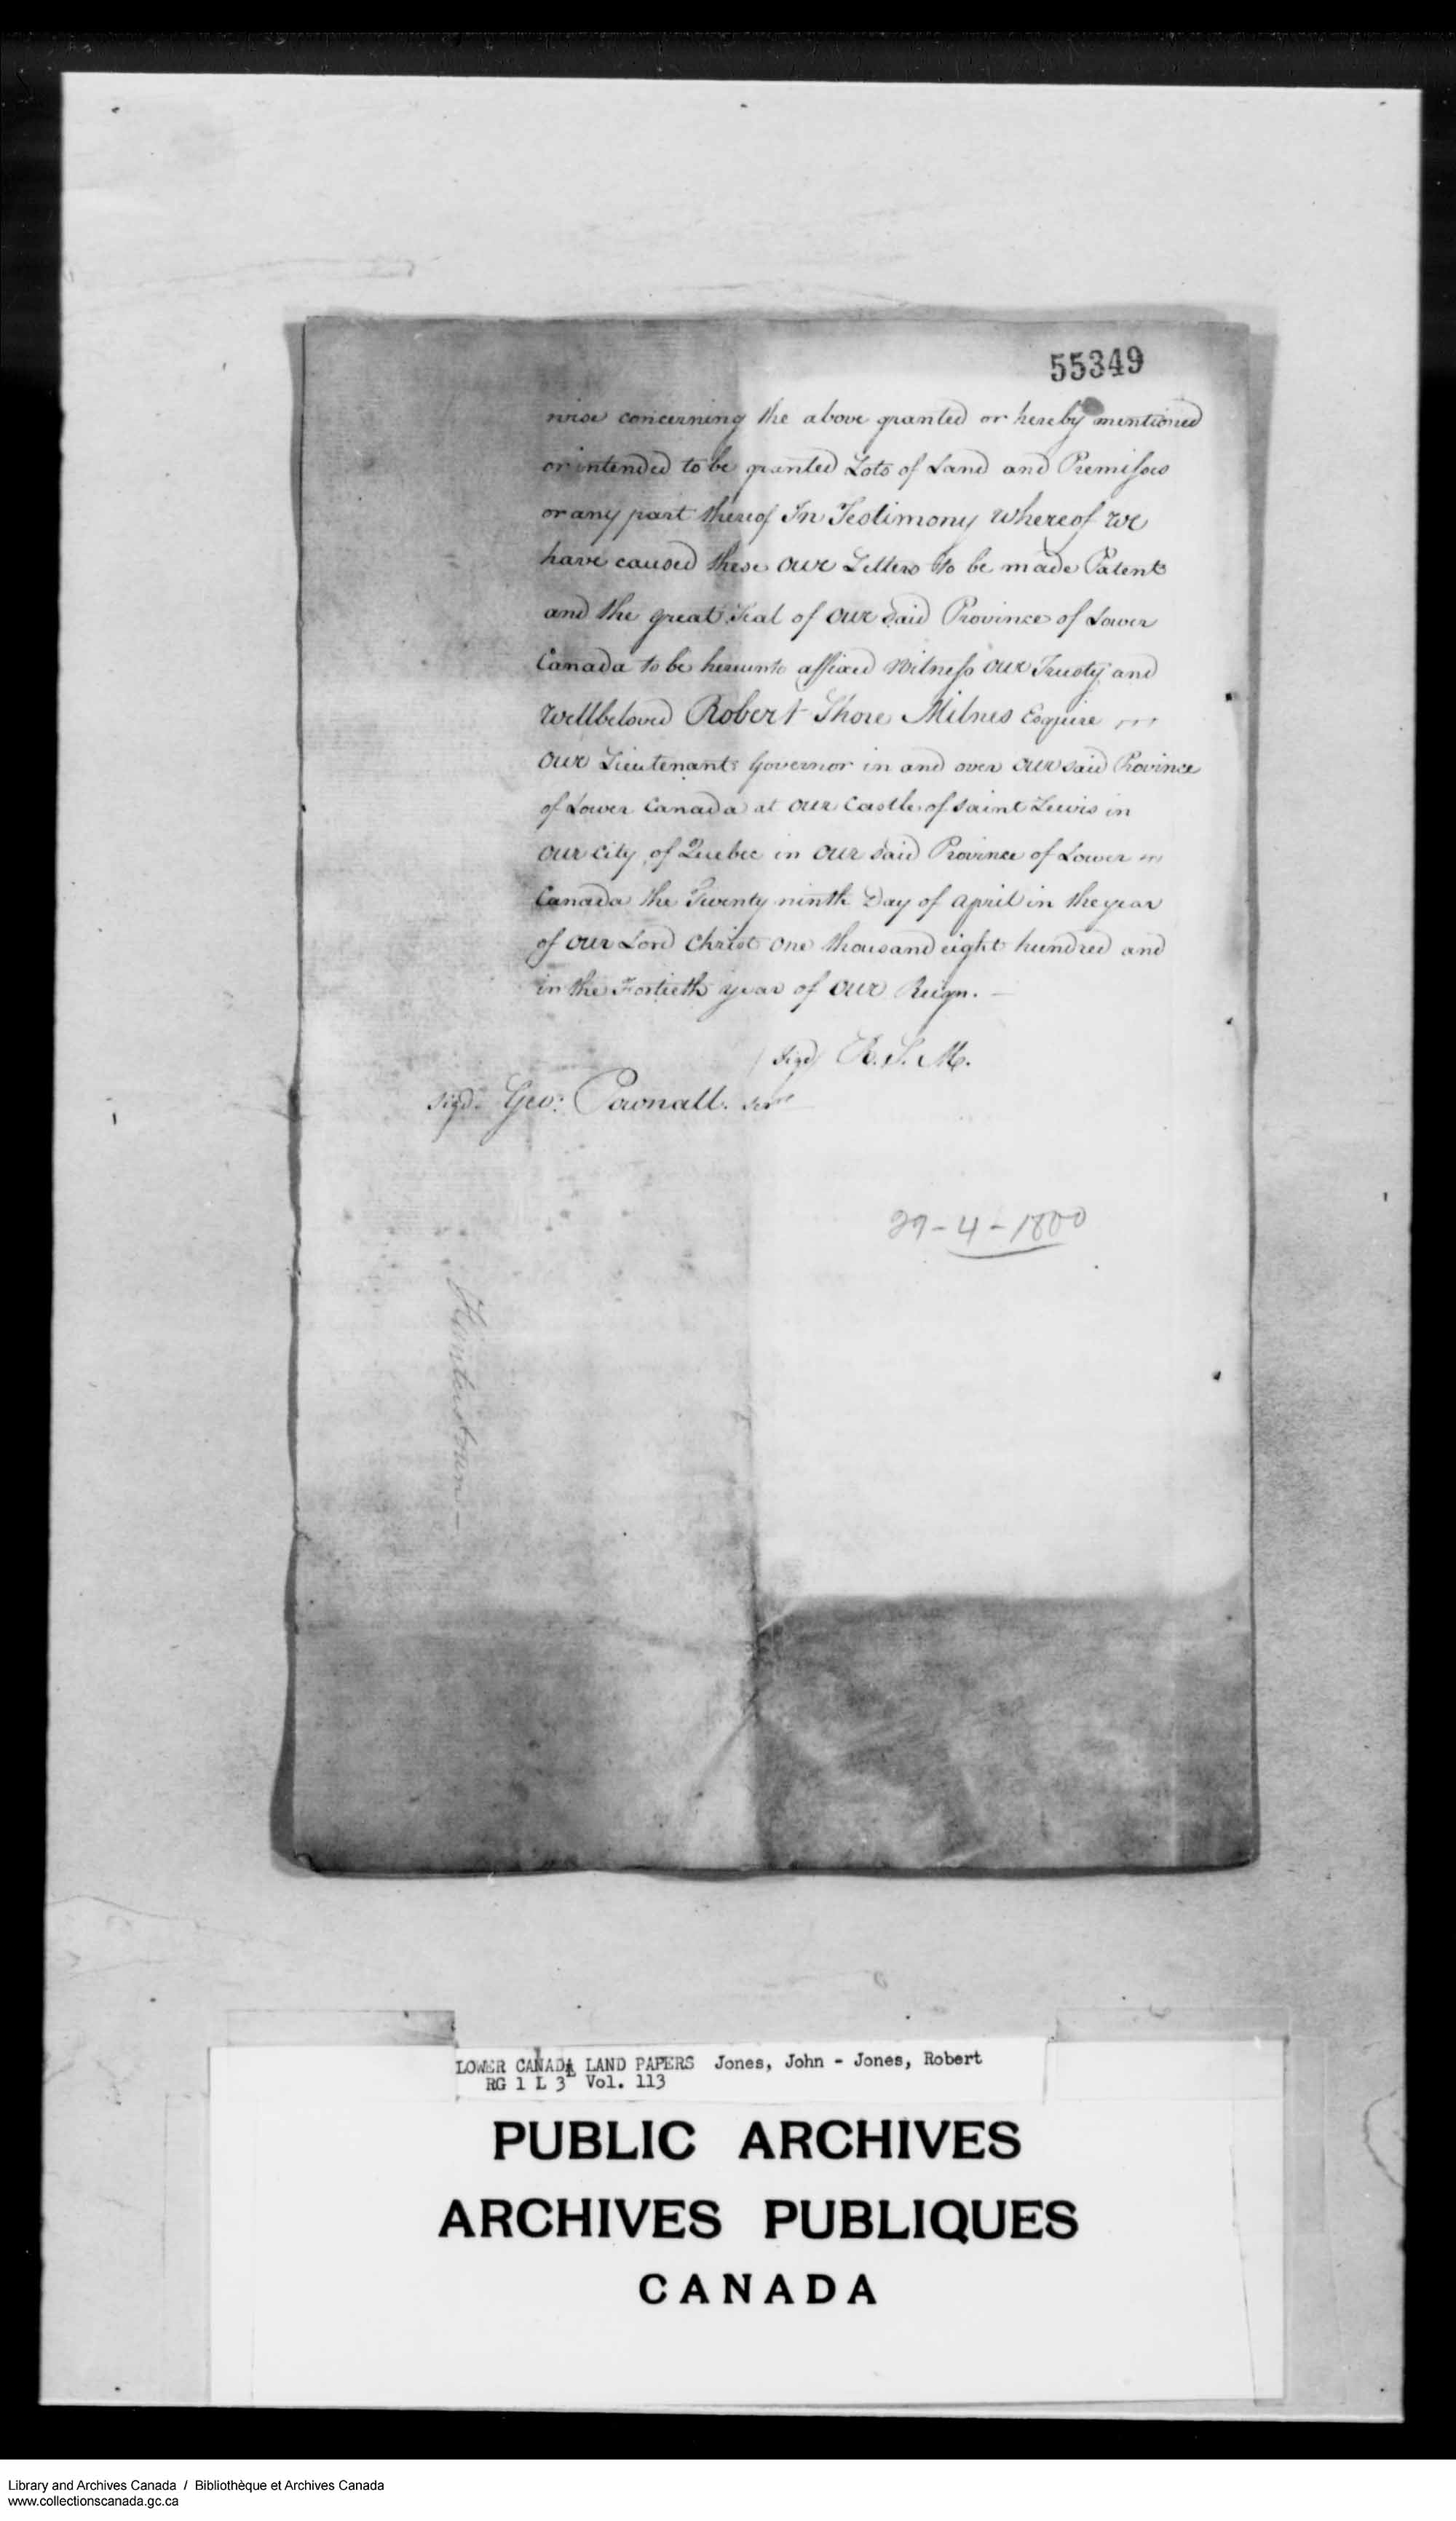 55349
wise concerning the above granted or hereby mentioned
or intended to be granted Lots of Land and Premisses
or any part thereof In Testimony whereof we
have caused these our Letters to be made Patent
and the great Seal of our said Province of Lower
Canada to be hereunto affixed Witness our Trusty and
Wellbeloved Robert Shore Milnes Esquire
our Lieutenant Governor in and over our said Province
of Lower Canada at our Castle of Saint Lewis in
our City of Quebec in our said Province of Lower
Canada the Twenty ninth Day of April in the year
of our Lord Christ one thousand eight hundred and
in the Fortieth year of our Reign. —
(Sigd) R. S. M.
Sigd. Geo: Pownall.
29-4-1800
Hunterstown —
LOWER CANADA LAND PAPERS Jones, John - Jones, Robert
RG 1 L 3 Vol. 113
PUBLIC ARCHIVES
ARCHIVES PUBLIQUES
CANADA
Library and Archives Canada / Bibliothèque et Archives Canada
www.collectionscanada.gc.ca